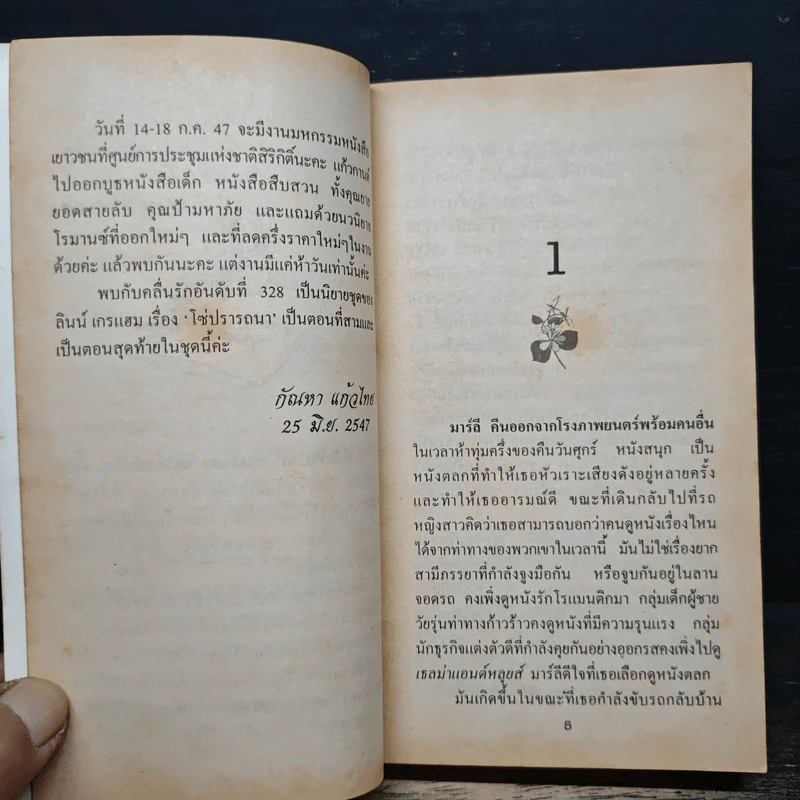 วันที่ 14-18 ก.ค. 47 จะมีงานมหกรรมหนังสือ
เยาวชนที่ศูนย์การประชุมแห่งชาติสิริกิติ์นะคะ แก้วกานต์
ไปออกบูธหนังสือเด็ก หนังสือสืบสวน ทั้งคุณยาย
ยอดสายลับ คุณป้ามหาภัย และแถมด้วยนวนิยาย
โรมานซ์ที่ออกใหม่ๆ และที่ลดครึ่งราคาใหม่ๆในงาน
ด้วยค่ะ แล้วพบกันนะคะ แต่งานมีแค่ห้าวันเท่านั้นค่ะ
พบกับคลื่นรักอันดับที่ 328 เป็นนิยายชุดของ
ลินน์ เกรแฮม เรื่อง ‘โซ่ปรารถนา’ เป็นตอนที่สามและ
เป็นตอนสุดท้ายในชุดนี้ค่ะ
กัณหา แก้วไทย
25 มิ.ย. 2547
1
มาร์ลี คีนออกจากโรงภาพยนตร์พร้อมคนอื่น
ในเวลาห้าทุ่มครึ่งของคืนวันศุกร์ หนังสนุก เป็น
หนังตลกที่ทำให้เธอหัวเราะเสียงดังอยู่หลายครั้ง
และทำให้เธออารมณ์ดี ขณะที่เดินกลับไปที่รถ
หญิงสาวคิดว่าเธอสามารถบอกว่าคนดูหนังเรื่องไหน
ได้จากท่าทางของพวกเขาในเวลานี้ มันไม่ใช่เรื่องยาก
สามีภรรยาที่กำลังจูงมือกัน หรือจูบกันอยู่ในลาน
จอดรถ คงเพิ่งดูหนังรักโรแมนติกมา กลุ่มเด็กผู้ชาย
วัยรุ่นท่าทางก้าวร้าวคงดูหนังที่มีความรุนแรง กลุ่ม
นักธุรกิจแต่งตัวดีที่กำลังคุยกันอย่างออกรสคงเพิ่งไปดู
เธลม่าแอนด์หลุยส์ มาร์ลีดีใจที่เธอเลือกดูหนังตลก
มันเกิดขึ้นในขณะที่เธอกำลังขับรถกลับบ้าน
8